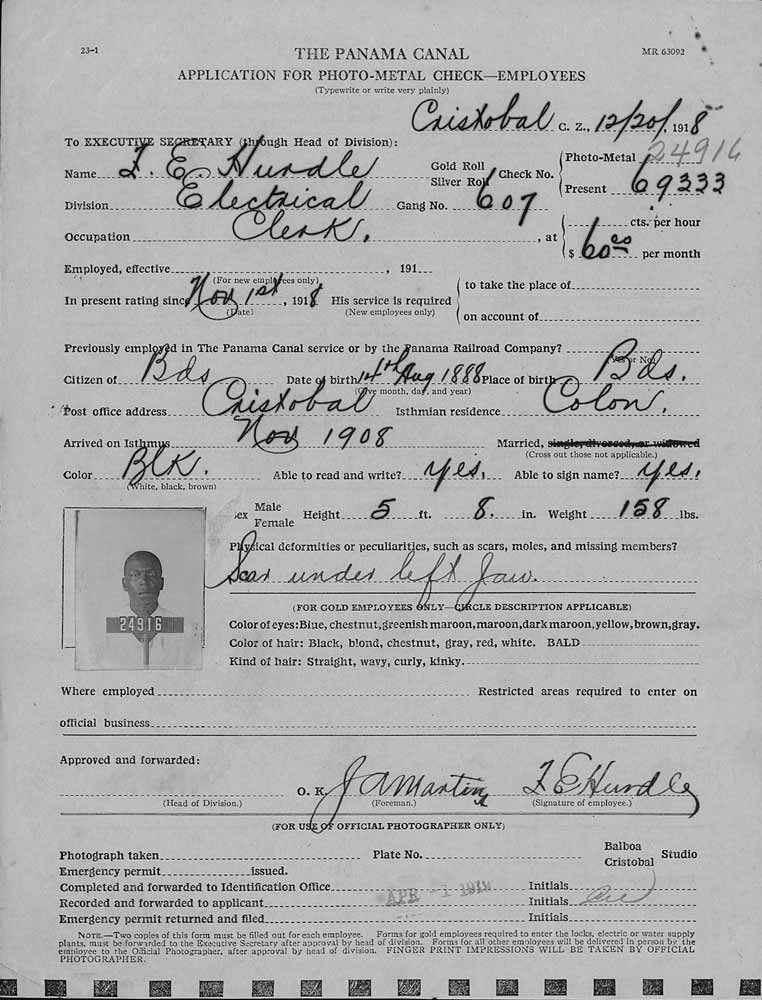 23-1
MR 63092
THE PANAMA CANAL
APPLICATION FOR PHOTO-METAL CHECK—EMPLOYEES
(Typewrite or write very plainly)
Cristobal C. Z., 12/20/, 1918
To EXECUTIVE SECRETARY (through Head of Division):
24916
Name F. E. Hurdle Gold Roll Silver Roll Check No. Photo-Metal Present 69333
Division Electrical Gang No. 607
Occupation Clerk, , at cts. per hour
$ 60.00 per month
Employed, effective , 191
(For new employees only)
to take the place of
In present rating since Nov 1st, 1918 His service is required
(Date) (New employees only)
on account of
Previously employed in The Panama Canal service or by the Panama Railroad Company?
(Yes or No)
Citizen of Bds Date of birth 14th Aug 1888 Place of birth Bds.
(Give month, day, and year)
Post office address Cristobal Isthmian residence Colon.
Arrived on Isthmus Nov 1908 Married, single, divorced, or widowed
(Cross out those not applicable.)
Color Blk. Able to read and write? yes, Able to sign name? yes,
(White, black, brown)
Sex Male Female Height 5 ft. 8. in. Weight 158 lbs.
Physical deformities or peculiarities, such as scars, moles, and missing members?
Scar under left Jaw.
24916
(FOR GOLD EMPLOYEES ONLY—CIRCLE DESCRIPTION APPLICABLE)
Color of eyes: Blue, chestnut, greenish maroon, maroon, dark maroon, yellow, brown, gray.
Color of hair: Black, blond, chestnut, gray, red, white. BALD
Kind of hair: Straight, wavy, curly, kinky.
Where employed Restricted areas required to enter on
official business
Approved and forwarded:
O. K. J A Martin F E Hurdle
(Head of Division.) (Foreman.) (Signature of employee.)
(FOR USE OF OFFICIAL PHOTOGRAPHER ONLY)
Photograph taken Plate No. Balboa Cristobal Studio
Emergency permit issued.
Completed and forwarded to Identification Office Initials
Recorded and forwarded to applicant APR -1 1919 Initials
Emergency permit returned and filed Initials
NOTE.—Two copies of this form must be filled out for each employee. Forms for gold employees required to enter the locks, electric or water supply
plants, must be forwarded to the Executive Secretary after approval by head of division. Forms for all other employees will be delivered in person by the
employee to the Official Photographer, after approval by head of division. FINGER PRINT IMPRESSIONS WILL BE TAKEN BY OFFICIAL
PHOTOGRAPHER.